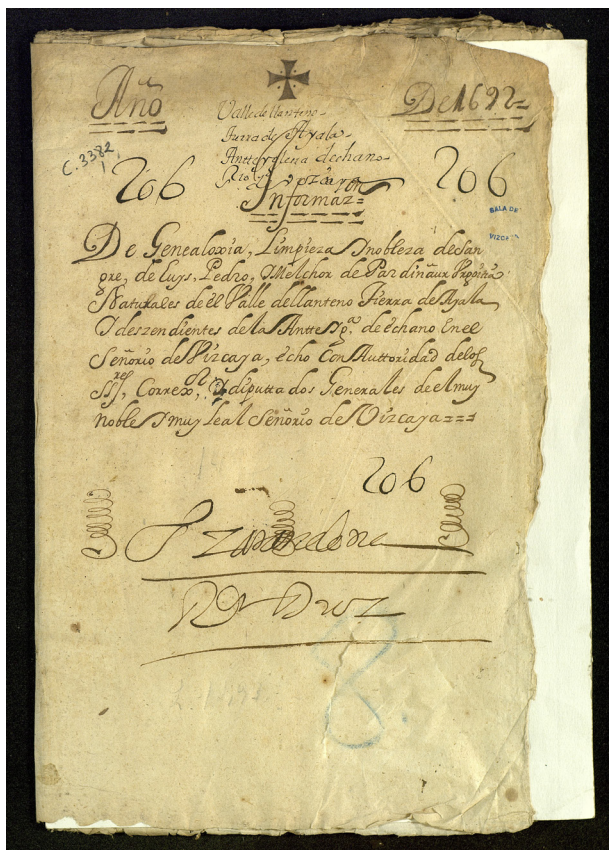 Año
De 1692=
Valle de llanteno-
tierra de Ayala-
Antteyglesia dechano-
C. 3382
1
206
206
SALA DE
VIZCAYA
Informazon=
De Genealoxia, Limpieza Y nobleza de San
gre, de Luys, Pedro, Y Melchor de Pardinaur
Naturales de el Valle dellanteno tierra de Ayala
Y deszendientes de la Antteygª. de échano En el
Señorio de Vizcaya, écho Con Auttoridad delos
SSres, Correxor, Y diputtados Generales de el muy
noble Y muy Leal Señorio de Vizcaya===
206